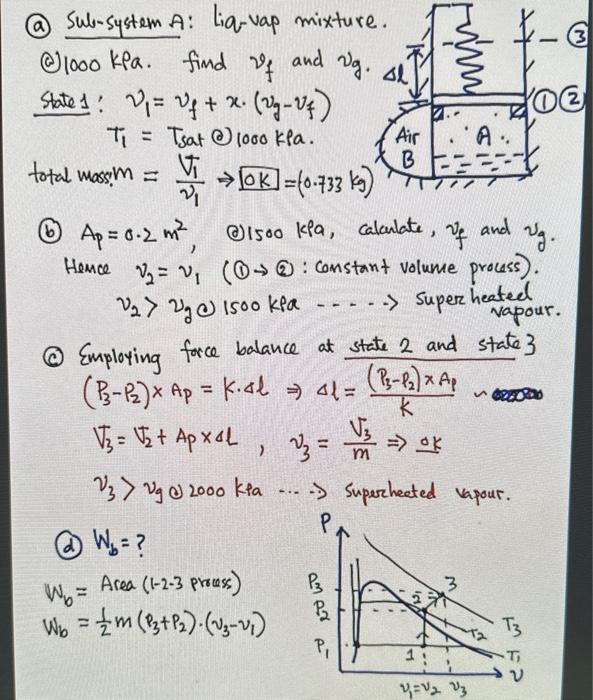 (a) Sub-system A: Liq-vap mixture.
@ 1000 kPa. find v_f and v_g.
State 1: v₁ = v_f + x·(v_g - v_f)
T₁ = Tsat @ 1000 kPa.
total mass: m = V₁/v₁ → OK = (0.733 kg)
Δl
① ② ③
Air
B
A
(b) Ap = 0.2 m², @ 1500 kPa, calculate, v_f and v_g.
Hence v₂ = v₁ (① → ② : constant volume process).
v₂ > v_g @ 1500 kPa -----> Superheated vapour.
(c) Employing force balance at state 2 and state 3
(P₃-P₂) × Ap = K·Δl ⇒ Δl = (P₃-P₂) × Ap / K
V₃ = V₂ + Ap × ΔL , v₃ = V₃/m ⇒ OK
v₃ > v_g @ 2000 kPa ---> Superheated vapour.
(d) W_b = ?
W_b = Area (1-2-3 process)
W_b = ½ m (P₃+P₂)·(v₃-v₁)
P
P₃
P₂
P₁
1
2
3
T₃
T₂
T₁
v
v₁=v₂ v₃